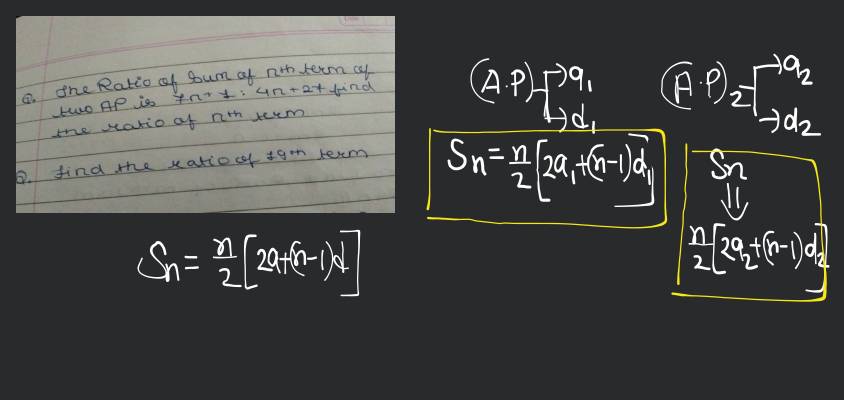 Q. The Ratio of Sum of nth term of
two AP is 7n+1 : 4n+27 find
the ratio of nth term
Q. find the ratio of 19th term
Sn = n/2 [2a+(n-1)d]
(A.P) → a₁
→ d₁
Sn = n/2 [2a₁+(n-1)d₁]
(A.P)₂ → a₂
→ d₂
Sn
⇓
n/2 [2a₂+(n-1)d₂]